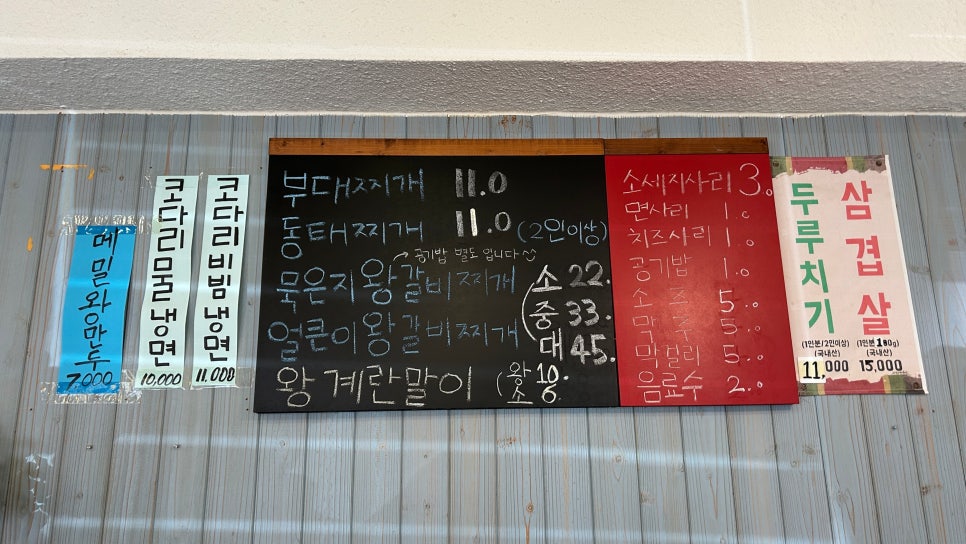 메밀왕만두
7.000
코다리물냉면
10.000
코다리비빔냉면
11.000
부대찌개 11.0
동태찌개 11.0 (2인이상)
공기밥 별도 입니다
묵은지왕갈비찌개 소 22.
중 33.
얼큰이왕갈비찌개 대 45.
왕계란말이 (왕 10.
소
소세지사리 3.0
면사리 1.0
치즈사리 1.0
공기밥 1.0
소주 5.0
맥주 5.0
막걸리 5.0
음료수 2.0
두루치기
(1인분/2인이상)
(국내산)
11.000
삼겹살
(1인분 180g)
(국내산)
15.000